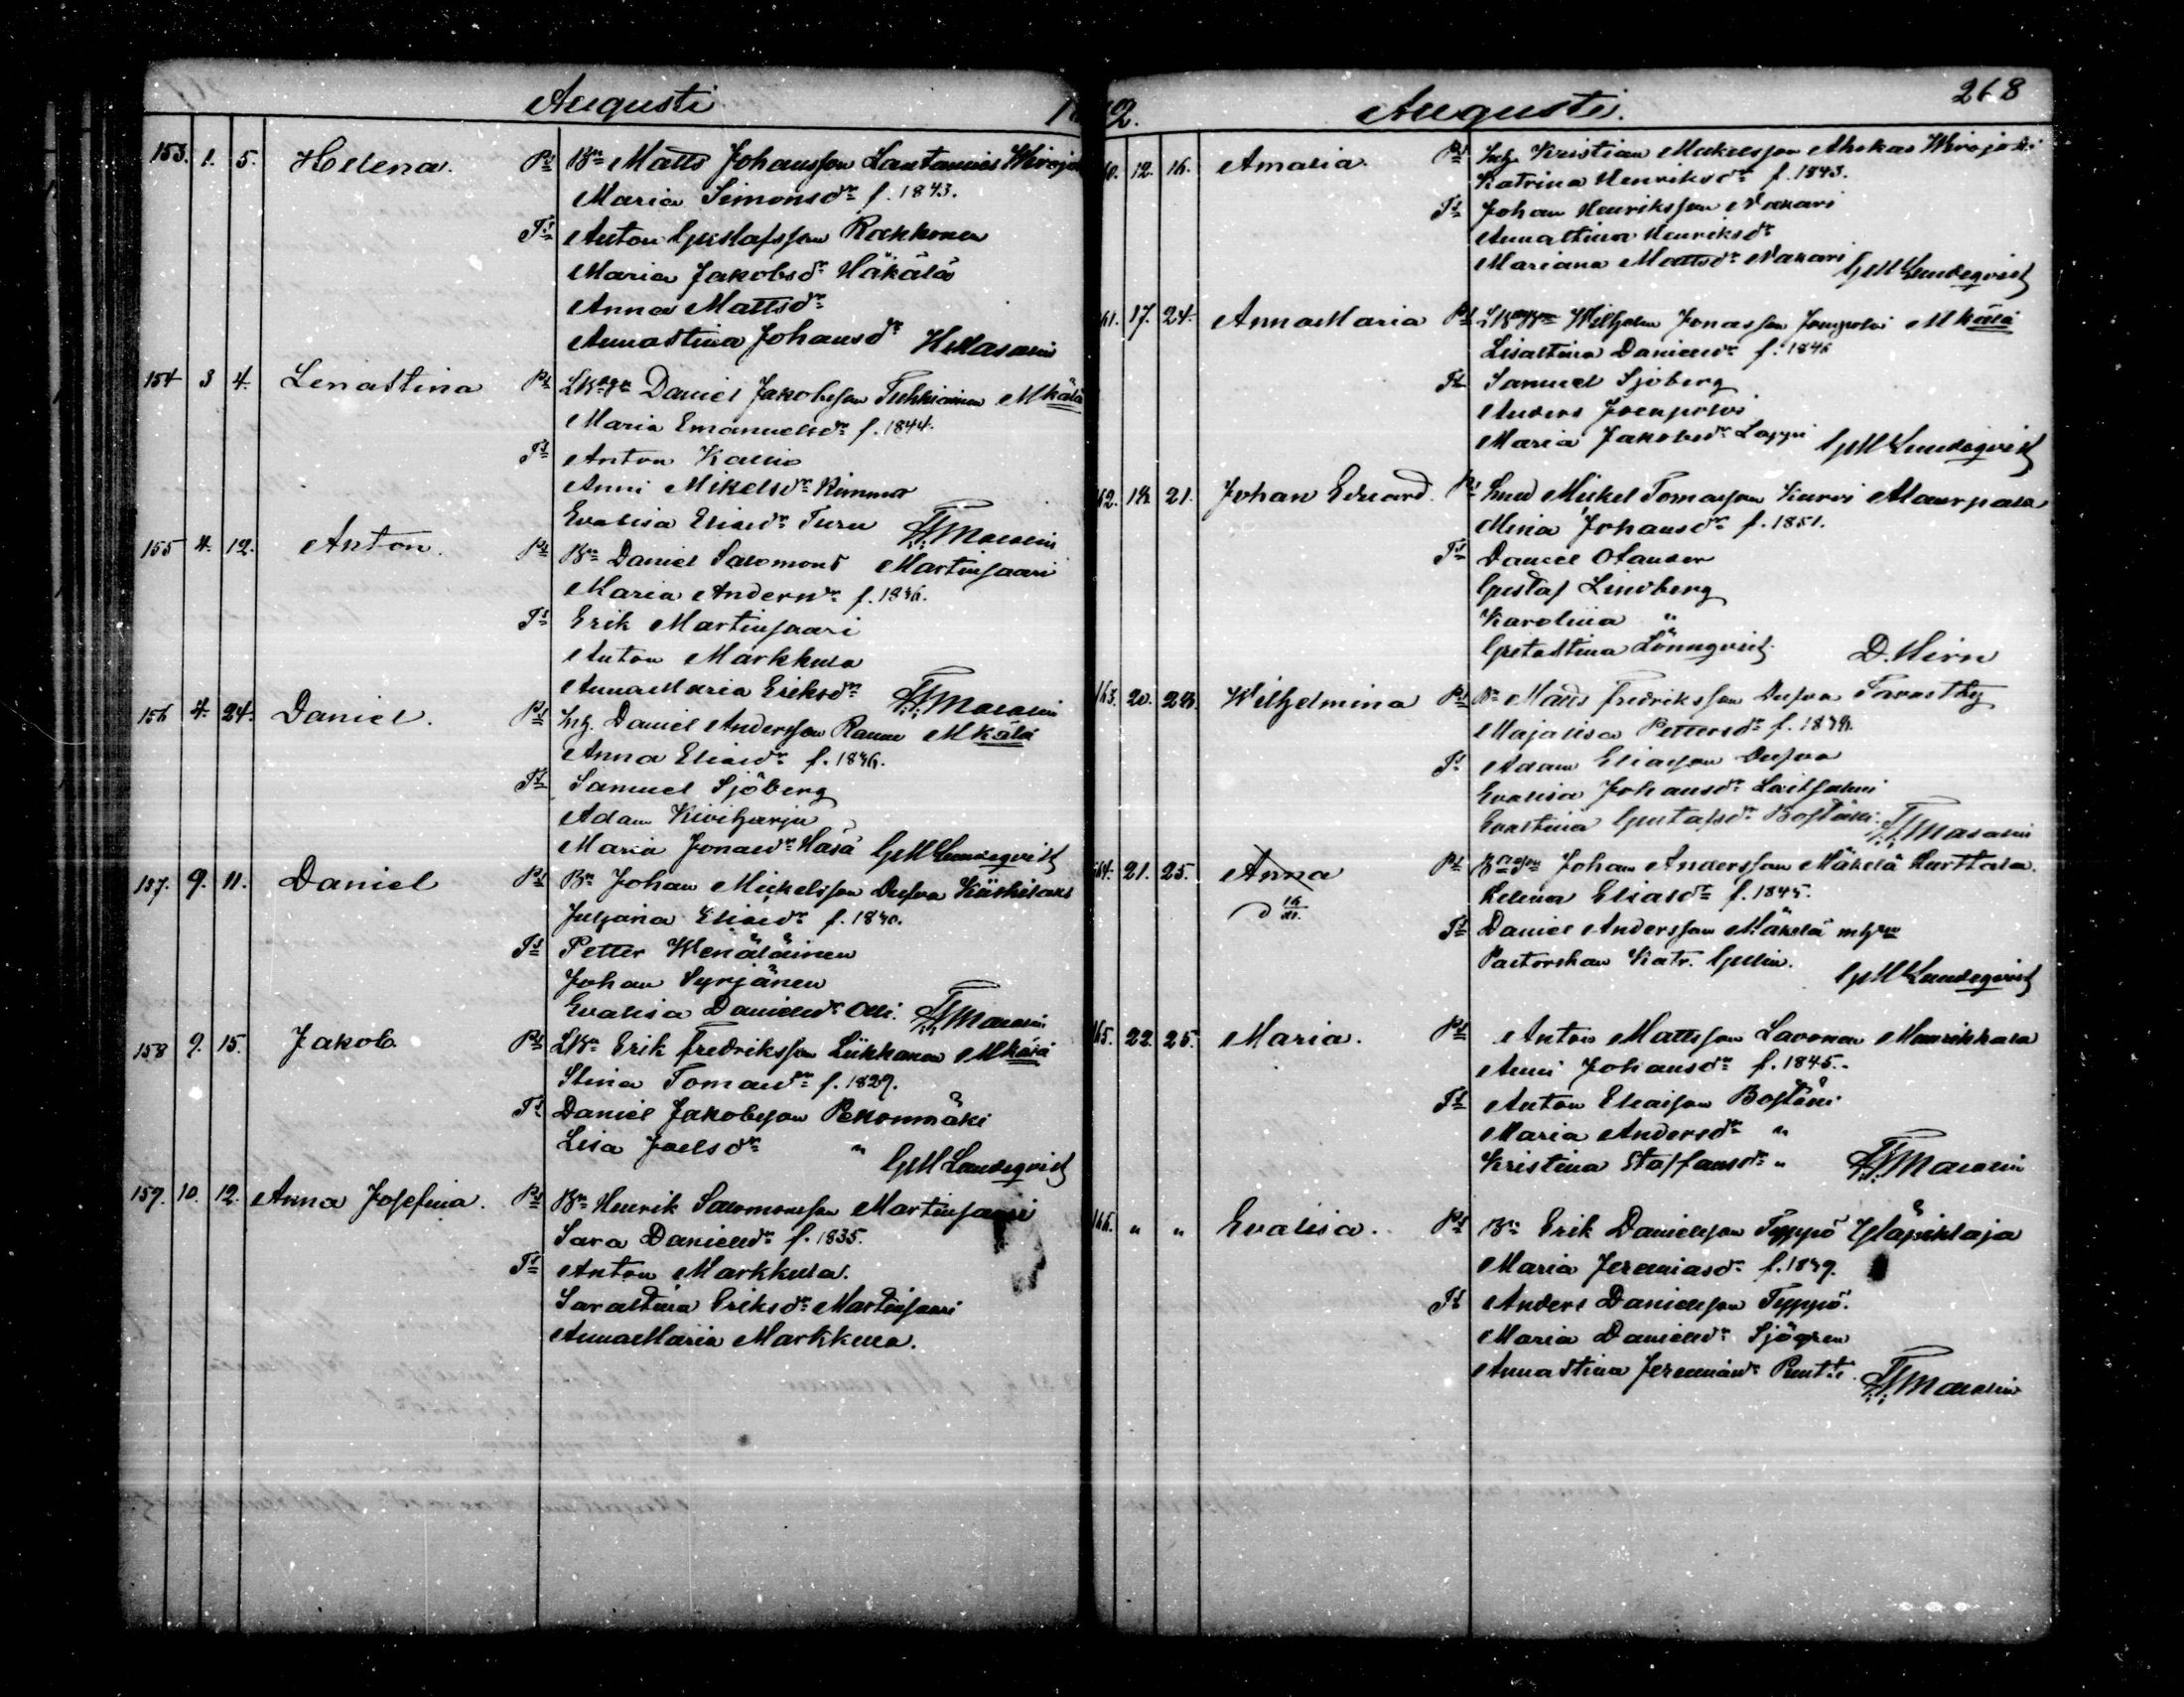 Augusti
153. 1. 5. Helena. Pr Bn Matts Johansson Lantamies Wirojoki
Maria Simonsdr f. 1843.
Tt Anton Gustafsson Rokkonen
Maria Jakobsdr Häkälä
Anna Mattsdr
Annastina Johansdr
154 3 4. Lenastina Pr Daniel Jakobsson Mkälä
Maria Emanuelsdr f. 1844.
Tt Anton Kallio
Anni Mikelsdr Rimmar
Evalisa Eliaedr Turu
155 4. 12. Anton. Pr Bn Daniel Salomons Martinsaari
Maria Andersdr f. 1846.
Tt Erik Martinsaari
Anton Markkula
Annamaria Eriksdr
156 4. 24. Daniel. Pr Daniel Andersson Mkälä
Anna Eliaedr f. 1846.
Tt Samuel Sjöberg
Adam Kiviharju
Maria Jonaedr Häsä GM Lundeqvist
157. 9. 11. Daniel Pr Bn Johan Mickelsson
Juljana Eliaedr f. 1840.
Tt Petter Wenäläinen
Johan Syrjänen
Evalisa Danielsdr Olli.
158 9. 15. Jakob Pr LBn Erik Fredriksson Liikkanen Mkälä
Stina Tomaedr f. 1829.
Tt Daniel Jakobsson Pekonmäki
Lisa Joelsdr " GM Lundeqvist
159. 10. 12. Anna Josefina. Pr Bn Henrik Salomonsson Martinsaari
Sara Danielsdr f. 1835.
Tt Anton Markkula.
Sarastina Eriksdr Martinsaari
Annamaria Markkula.
Augusti. 268
12. 16. Amalia Pr Kristian Mickelsson Ahokas Wirojoki
Katrina Henriksdr f. 1843.
Tt Johan Henriksson Nakari
Annastina Henriksdr
Mariana Mattsdr Nakari GM Lundeqvist
61. 17. 24. Annamaria Pr Wilhelm Jonasson Mkälä
Lisastina Danielsdr f. 1846
Tt Samuel Sjöberg
Anders
Maria Jakobsdr Lappi GM Lundeqvist
62. 18 21. Johan Eduard. Pr Mickel Tomasson Karvi
Mina Johansdr f. 1851.
Tt Daniel Olander
Gustaf Lindberg
Karolina "
Gretastina Lönnqvist. D. Hirn
163. 20. 28. Wilhelmina Pr Bn Matts Fredriksson Tavastby
Majalisa Pettersdr f. 1838.
Tt Adam Eliasson
Evalisa Johansdr Laitsalmi
Evastina Gustafsdr
164. 21. 25. Anna Pr Johan Andersson Mäkelä Hurttala.
Helena Eliasdr f. 1845.
Tt Daniel Andersson Mäkelä
Pastorskan Katr. GM Lundeqvist
165. 22. 25. Maria. Pr Anton Mattsson Savonen
Anni Johansdr f. 1845.
Tt Anton Eliasson
Maria Andersdr "
Kristina Staffansdr "
166. " " Evalisa. Pr Bn Erik Danielsson Typpö
Maria Jeremiasdr f. 1849.
Tt Anders Danielsson Typpö.
Maria Danielsdr Sjögren
Annastina Jeremiaedr Pentti.